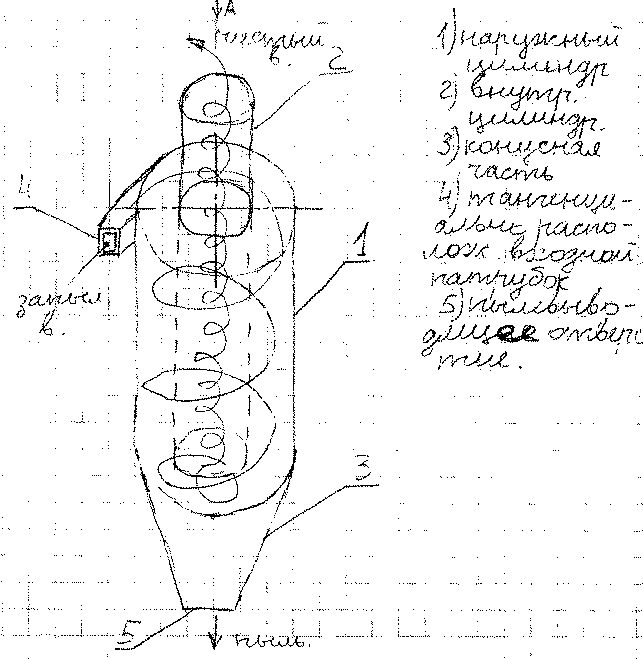 А
чистый
в.
2
4
запыл
в.
1
3
5
пыль.
1) наружный
цилиндр
2) внутр.
цилиндр.
3) конусная
часть
4) тангенци-
ально распо-
лож входной
патрубок
5) пылевыво-
дящее отверс
тие.